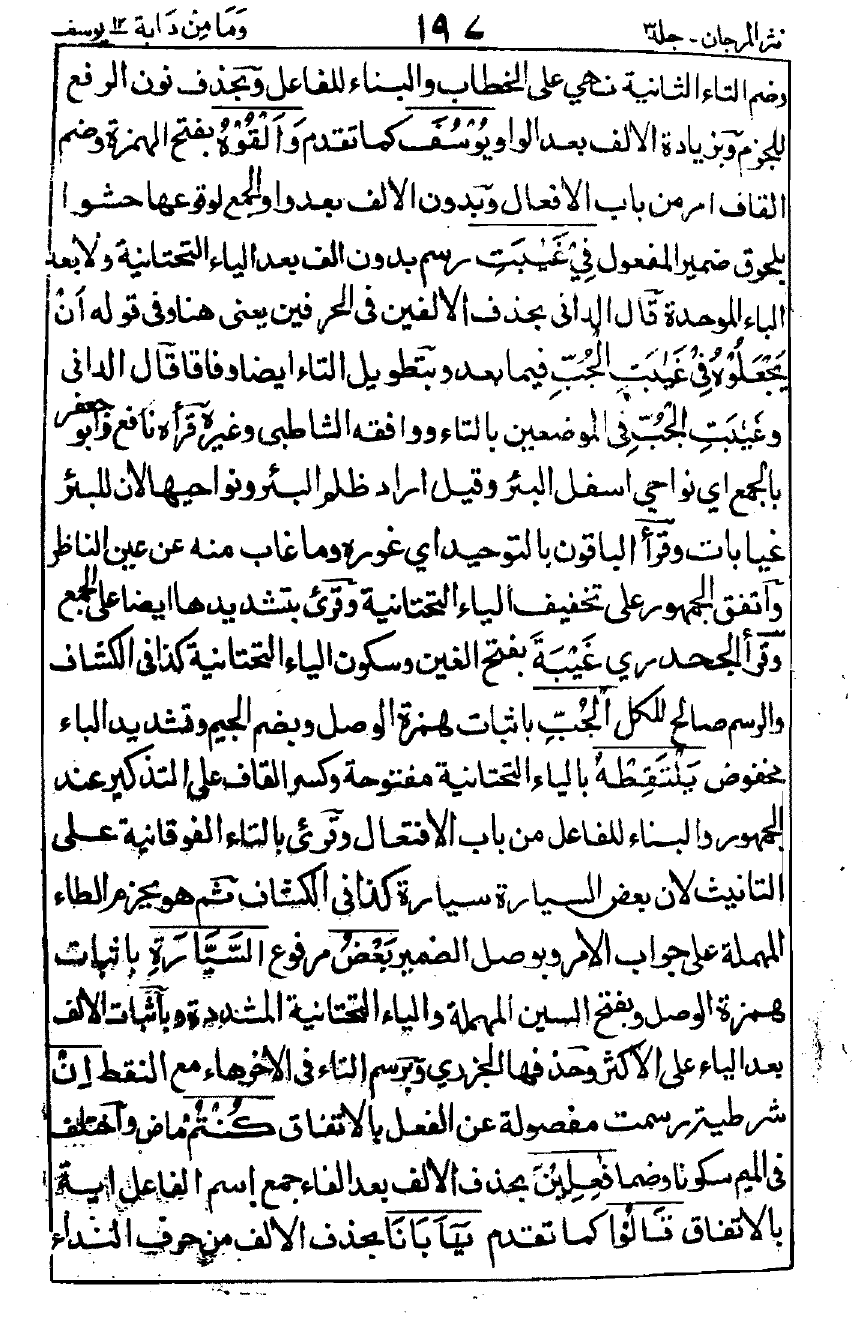 نثر المرجان - جلد٣ ١٩٧ وَمَا مِنْ دَابة ١٢ يوسف
وضم التاء الثانية نهي على الخطاب والبناء للفاعل وَبحذف نون الرفع
للجزم وَبزيادة الالف بعد الواو يُوْسُفَ كما تقدم وَاَلْقُوْهُ بفتح الهمزة وضم
القاف امر من باب الافعال وَبدون الالف بعد واو الجمع لوقوعها حشوا
بلحوق ضمير المفعول فِيْ غَيٰبَتِ رسم بدون الف بعد الياء التحتانية ولا بعد
الباء الموحدة قَال الدانى بحذف الالفين فى الحرفين يعنى هنا وفى قوله اَنْ
يَجْعَلُوْهُ فِيْ غَيٰبَتِ الْجُبِّ فيما بعد وبتطويل التاء ايضا وفاقا قَال الدانى
وغَيٰبَتِ الْجُبِّ فى الموضعين بالتاء ووافقه الشاطبى وغيره قَرأه نَافع وَابو جعفر
بالجمع اي نواحي اسفل البئر وقيل اراد ظلم البئر ونواحيها لان للبئر
غيابات وقَرأ الباقون بالتوحيد اي غوره وما غاب منه عن عين الناظر
وَاتفق الجمهور على تخفيف الياء التحتانية وقَرئ بتشديدها ايضا على الجمع
وَقَرأ الجحدري غَيْبَةَ بفتح الغين وسكون الياء التحتانية كذا فى الكشاف
والرسم صالح للكل اَلْجُبِّ باثبات همزة الوصل وبضم الجيم وتشديد الباء
مخفوض يَلْتَقِطْهُ بالياء التحتانية مفتوحة وكسر القاف على التذكير عند
الجمهور والبناء للفاعل من باب الافتعال وقَرئ بالتاء الفوقانية على
التانيث لان بعض السيارة سيارة كذا فى الكشاف ثم هو بجزم الطاء
المهملة على جواب الامر وبوصل الضمير بَعْضُ مرفوع السَّيَّارَةِ باثبات
همزة الوصل وبفتح السين المهملة والياء التحتانية المشددة وباثبات الالف
بعد الياء على الاكثر وحذفها الجزري وَبرسم التاء فى الاخر هاء مع النقط اِنْ
شرطية رسمت مفصولة عن الفعل بالاتفاق كُنْتُمْ ماض وَاختلف
فى الميم سكونا وضما فٰعِلِيْنَ بحذف الالف بعد الفاء جمع اسم الفاعل اية
بالاتفاق قَالُوْا كما تقدم يٰۤاَبَانَا بحذف الالف من حرف النداء